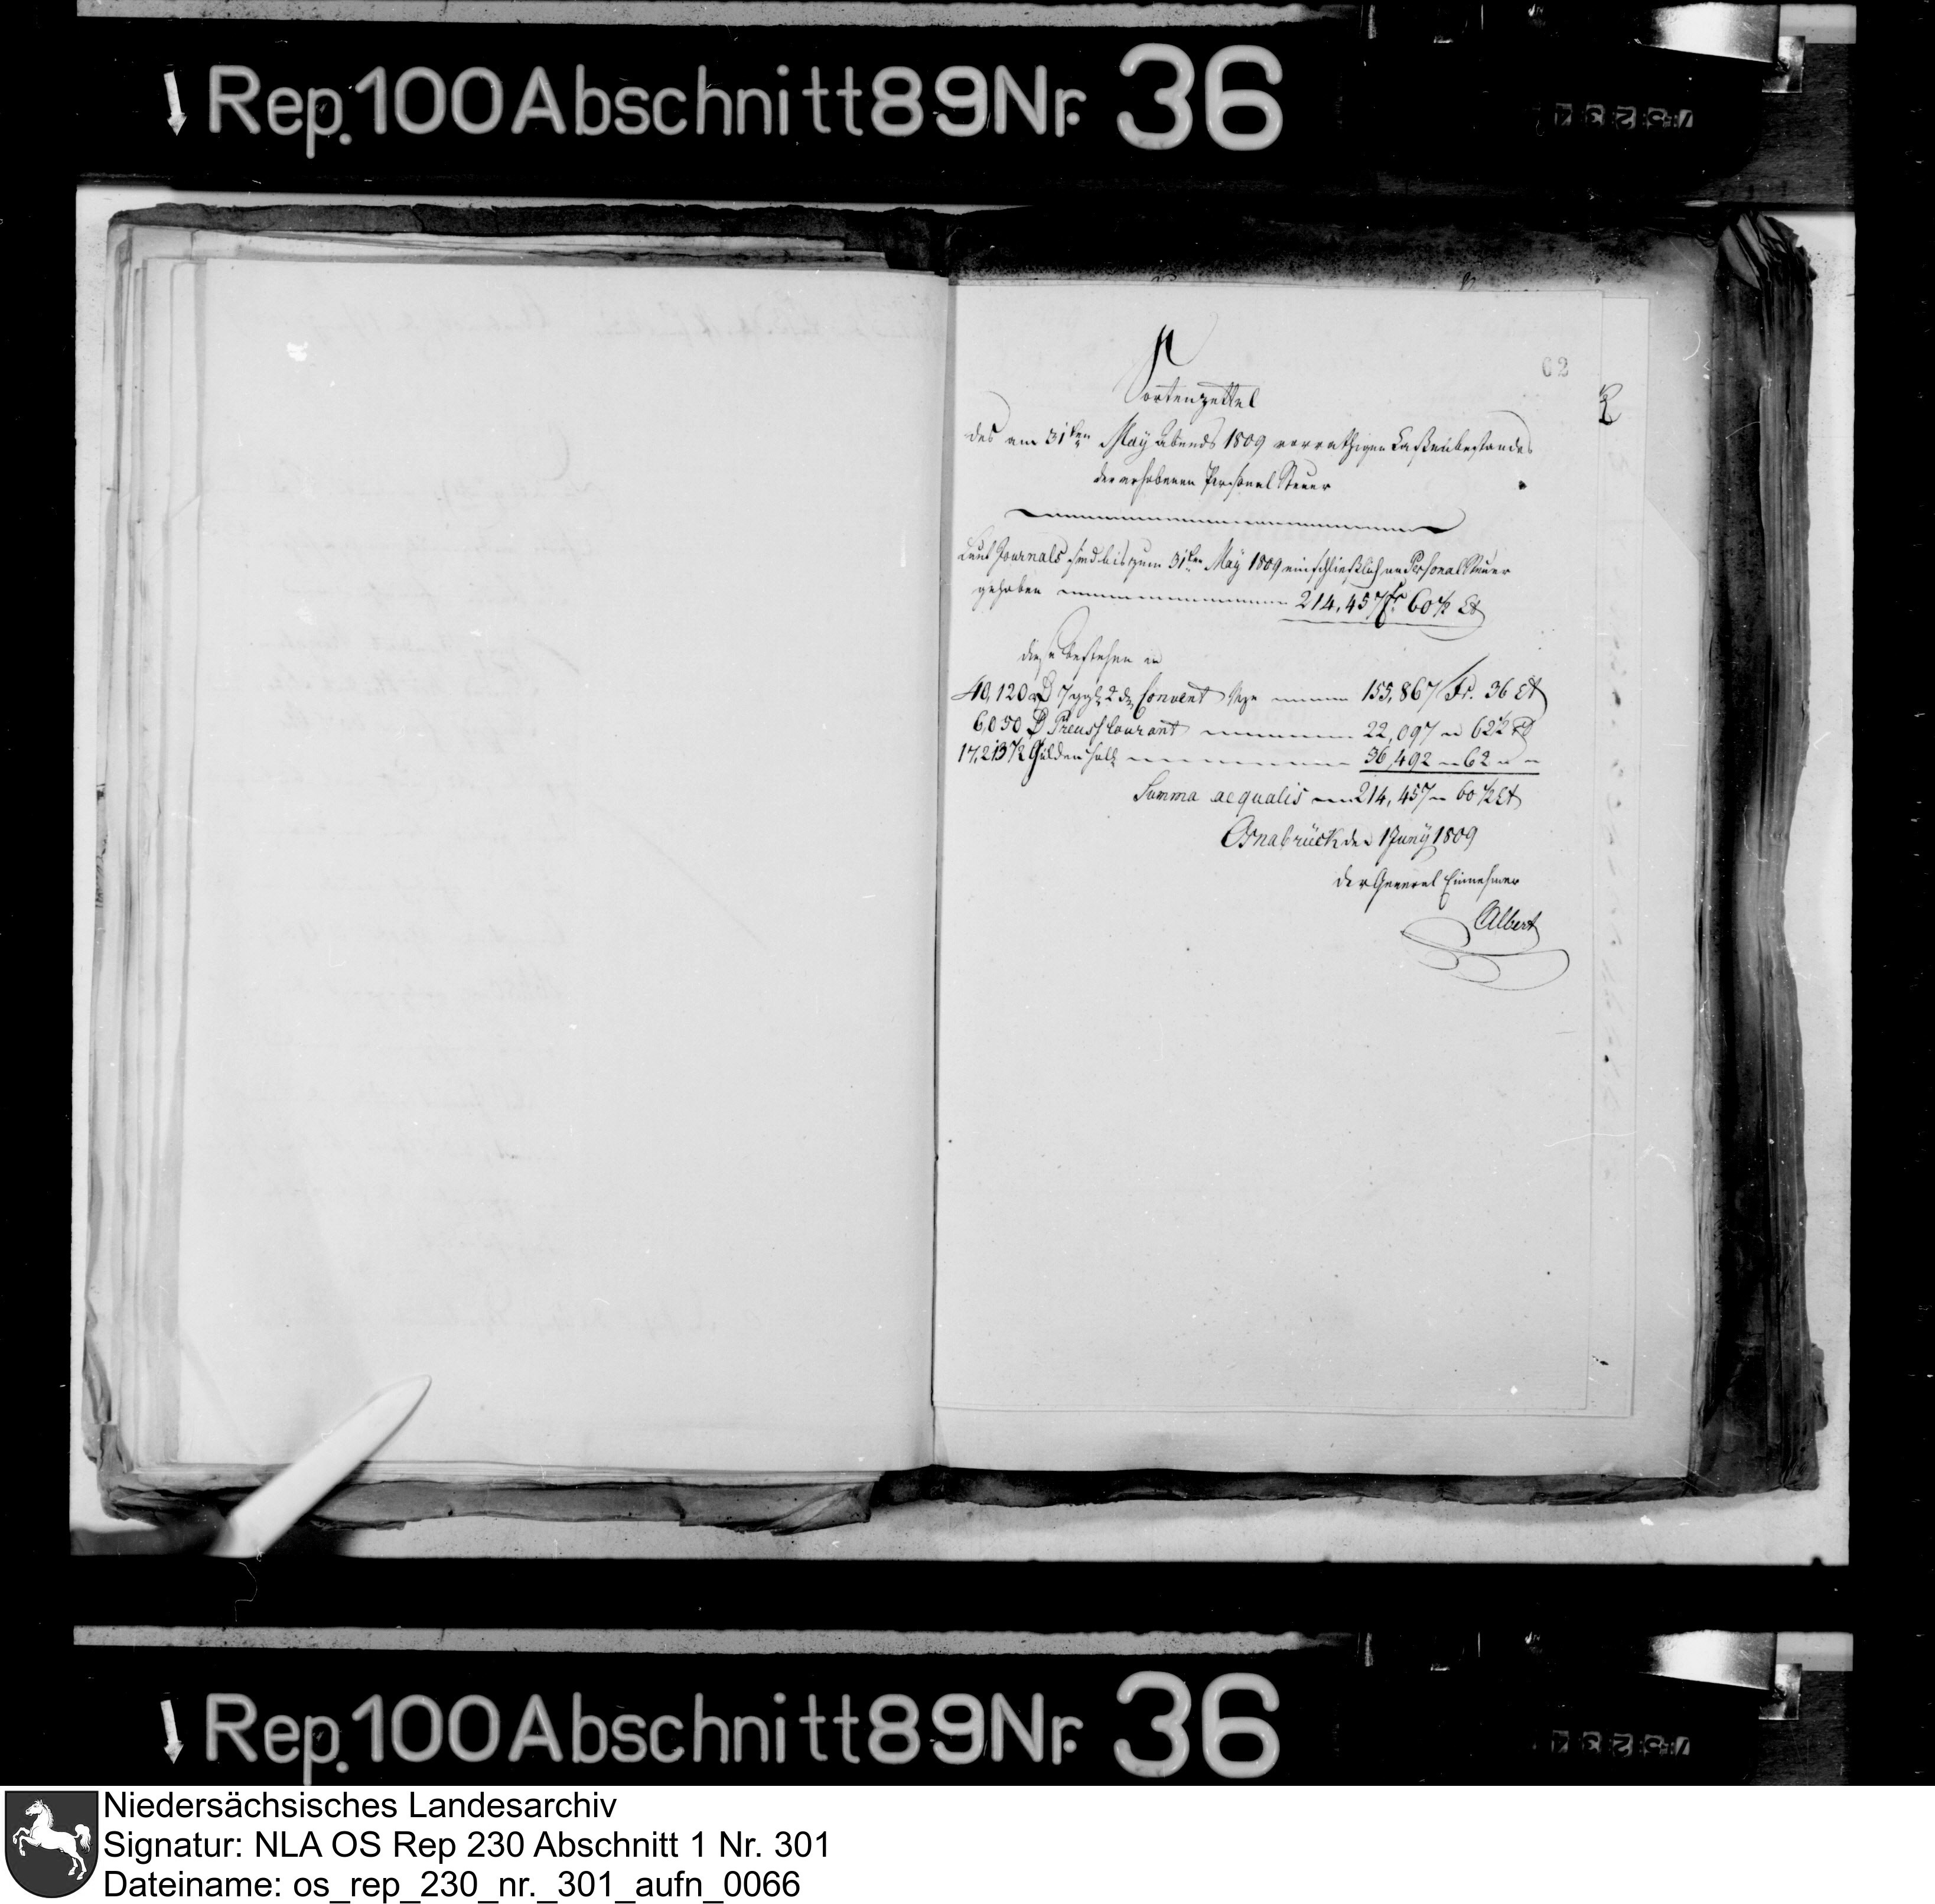 Rep. 100 Abschnitt 89 Nr. 36
62
Sortenzettel
des am 31ten May Abends 1809 vorräthigen Cassenbestandes
der erhobenen Personal Steuer
Laut Journals sind bis zum 31ten May 1809 einschließlich an Personal Steuer
gehoben 214,457 Fr 60½ Ct
diese bestehen in
40,120 rℓ 7 ggr 2 d Convent Mze 155,867 Fr. 36 Ct
6,050 rℓ Preuss Courant 22,097 " 62½ Ct
17,213½ Gulden holl 36,492 " 62 " "
Summa aequalis 214,457 " 60½ Ct
Osnabrück den 1 Juny 1809
der General Einnehmer
Albert
Rep. 100 Abschnitt 89 Nr. 36
Niedersächsisches Landesarchiv
Signatur: NLA OS Rep 230 Abschnitt 1 Nr. 301
Dateiname: os_rep_230_nr._301_aufn_0066